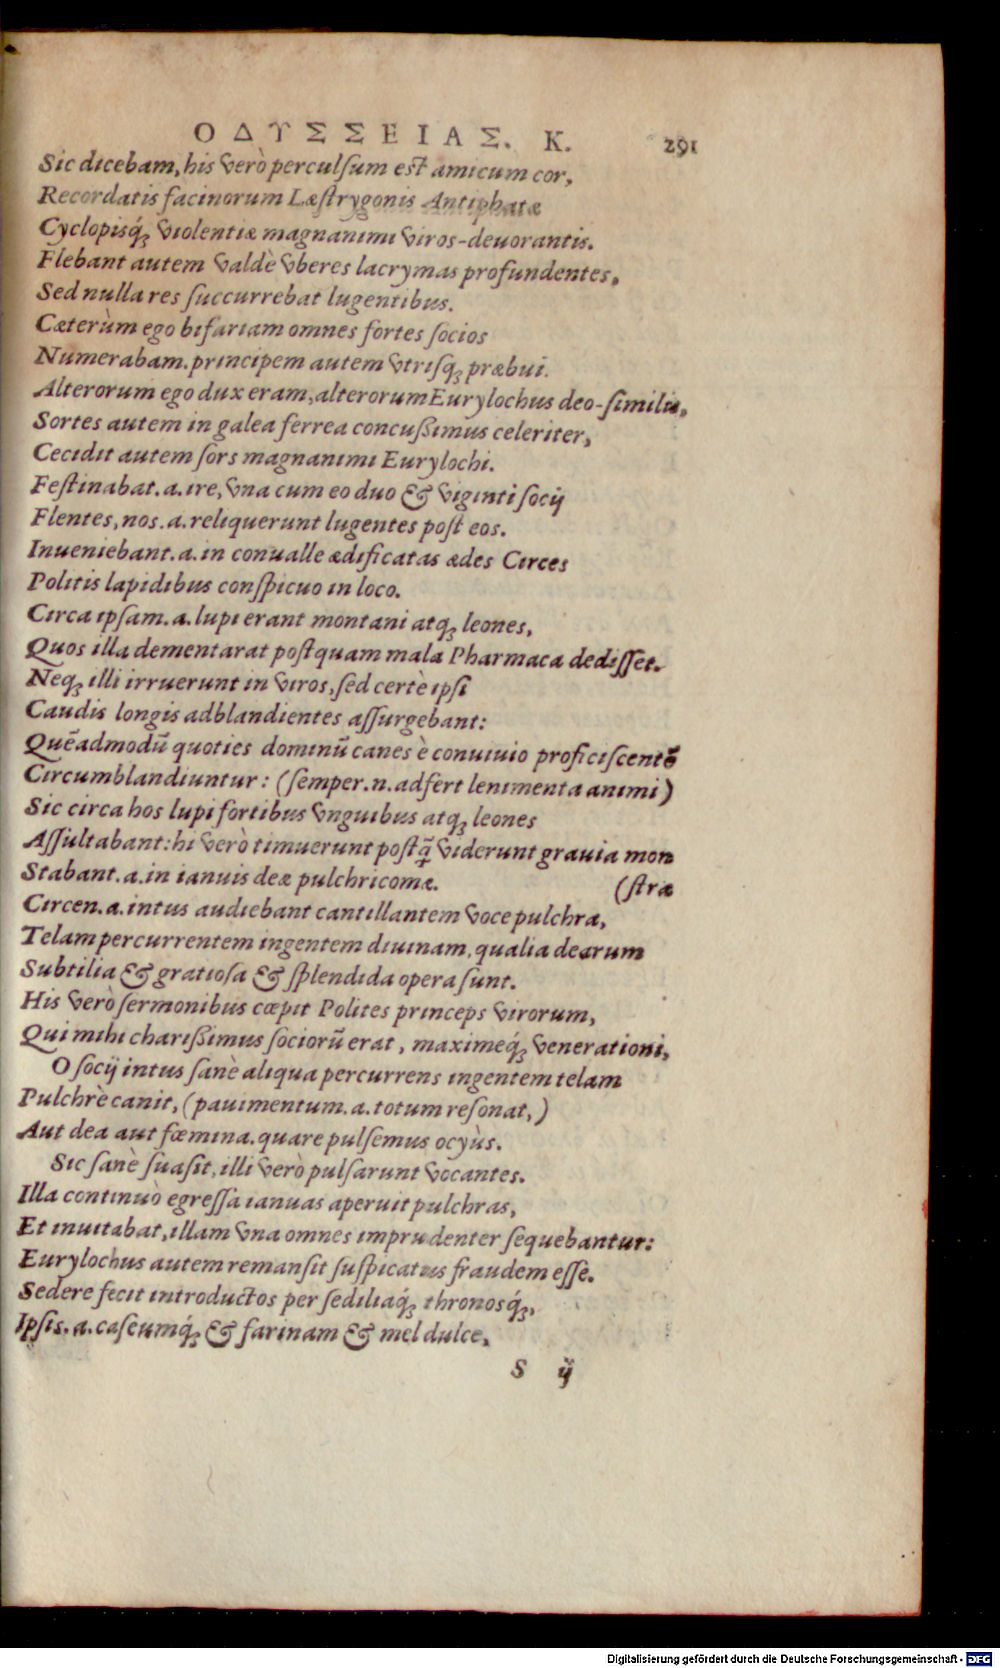 ΟΔΥΣΣΕΙΑΣ. Κ. 291
Sic dicebam, his verò perculſum est amicum cor,
Recordatis facinorum Læſtrygonis Antiphatæ
Cyclopisq́ꝫ violentiæ magnanimi viros-deuorantis.
Flebant autem valdè vberes lacrymas profundentes,
Sed nulla res ſuccurrebat lugentibus.
Cæterùm ego bifariam omnes fortes ſocios
Numerabam. principem autem vtriſqꝫ præbui.
Alterorum ego dux eram, alterorum Eurylochus deo-ſimilis,
Sortes autem in galea ferrea concußimus celeriter,
Cecidit autem ſors magnanimi Eurylochi.
Feſtinabat. a. ire, vna cum eo duo & viginti ſocij
Flentes, nos. a. reliquerunt lugentes poſt eos.
Inueniebant. a. in conualle ædificatas ædes Circes
Politis lapidibus conſpicuo in loco.
Circa ipſam. a. lupi erant montani atqꝫ leones,
Quos illa dementarat poſtquam mala Pharmaca dediſſet.
Neqꝫ illi irruerunt in viros, ſed certè ipſi
Caudis longis adblandientes aſſurgebant:
Quẽadmodũ quoties dominũ canes è conuiuio proficiſcentẽ
Circumblandiuntur: (ſemper. n. adfert lenimenta animi)
Sic circa hos lupi fortibus vnguibus atqꝫ leones
Aſſultabant: hi verò timuerunt poſtq̃ viderunt grauia mon
Stabant. a. in ianuis deæ pulchricomæ. (ſtra
Circen. a. intus audiebant cantillantem voce pulchra,
Telam percurrentem ingentem diuinam, qualia dearum
Subtilia & gratioſa & ſplendida opera ſunt.
His verò ſermonibus cœpit Polites princeps virorum,
Qui mihi charißimus ſociorũ erat, maximeq́ꝫ venerationi,
O ſocij intus ſanè aliqua percurrens ingentem telam
Pulchrè canit, (pauimentum. a. totum reſonat,)
Aut dea aut fœmina. quare pulſemus ocyùs.
Sic ſanè ſuaſit, illi verò pulſarunt vocantes.
Illa continuò egreſſa ianuas aperuit pulchras,
Et inuitabat, illam vna omnes imprudenter ſequebantur:
Eurylochus autem remanſit ſuſpicatus fraudem eſſe.
Sedere fecit introductos per ſediliaq́ꝫ thronosq́ꝫ,
Ipſis. a. caſeumq́ꝫ & farinam & mel dulce,
S ij
Digitalisierung gefördert durch die Deutsche Forschungsgemeinschaft - DFG